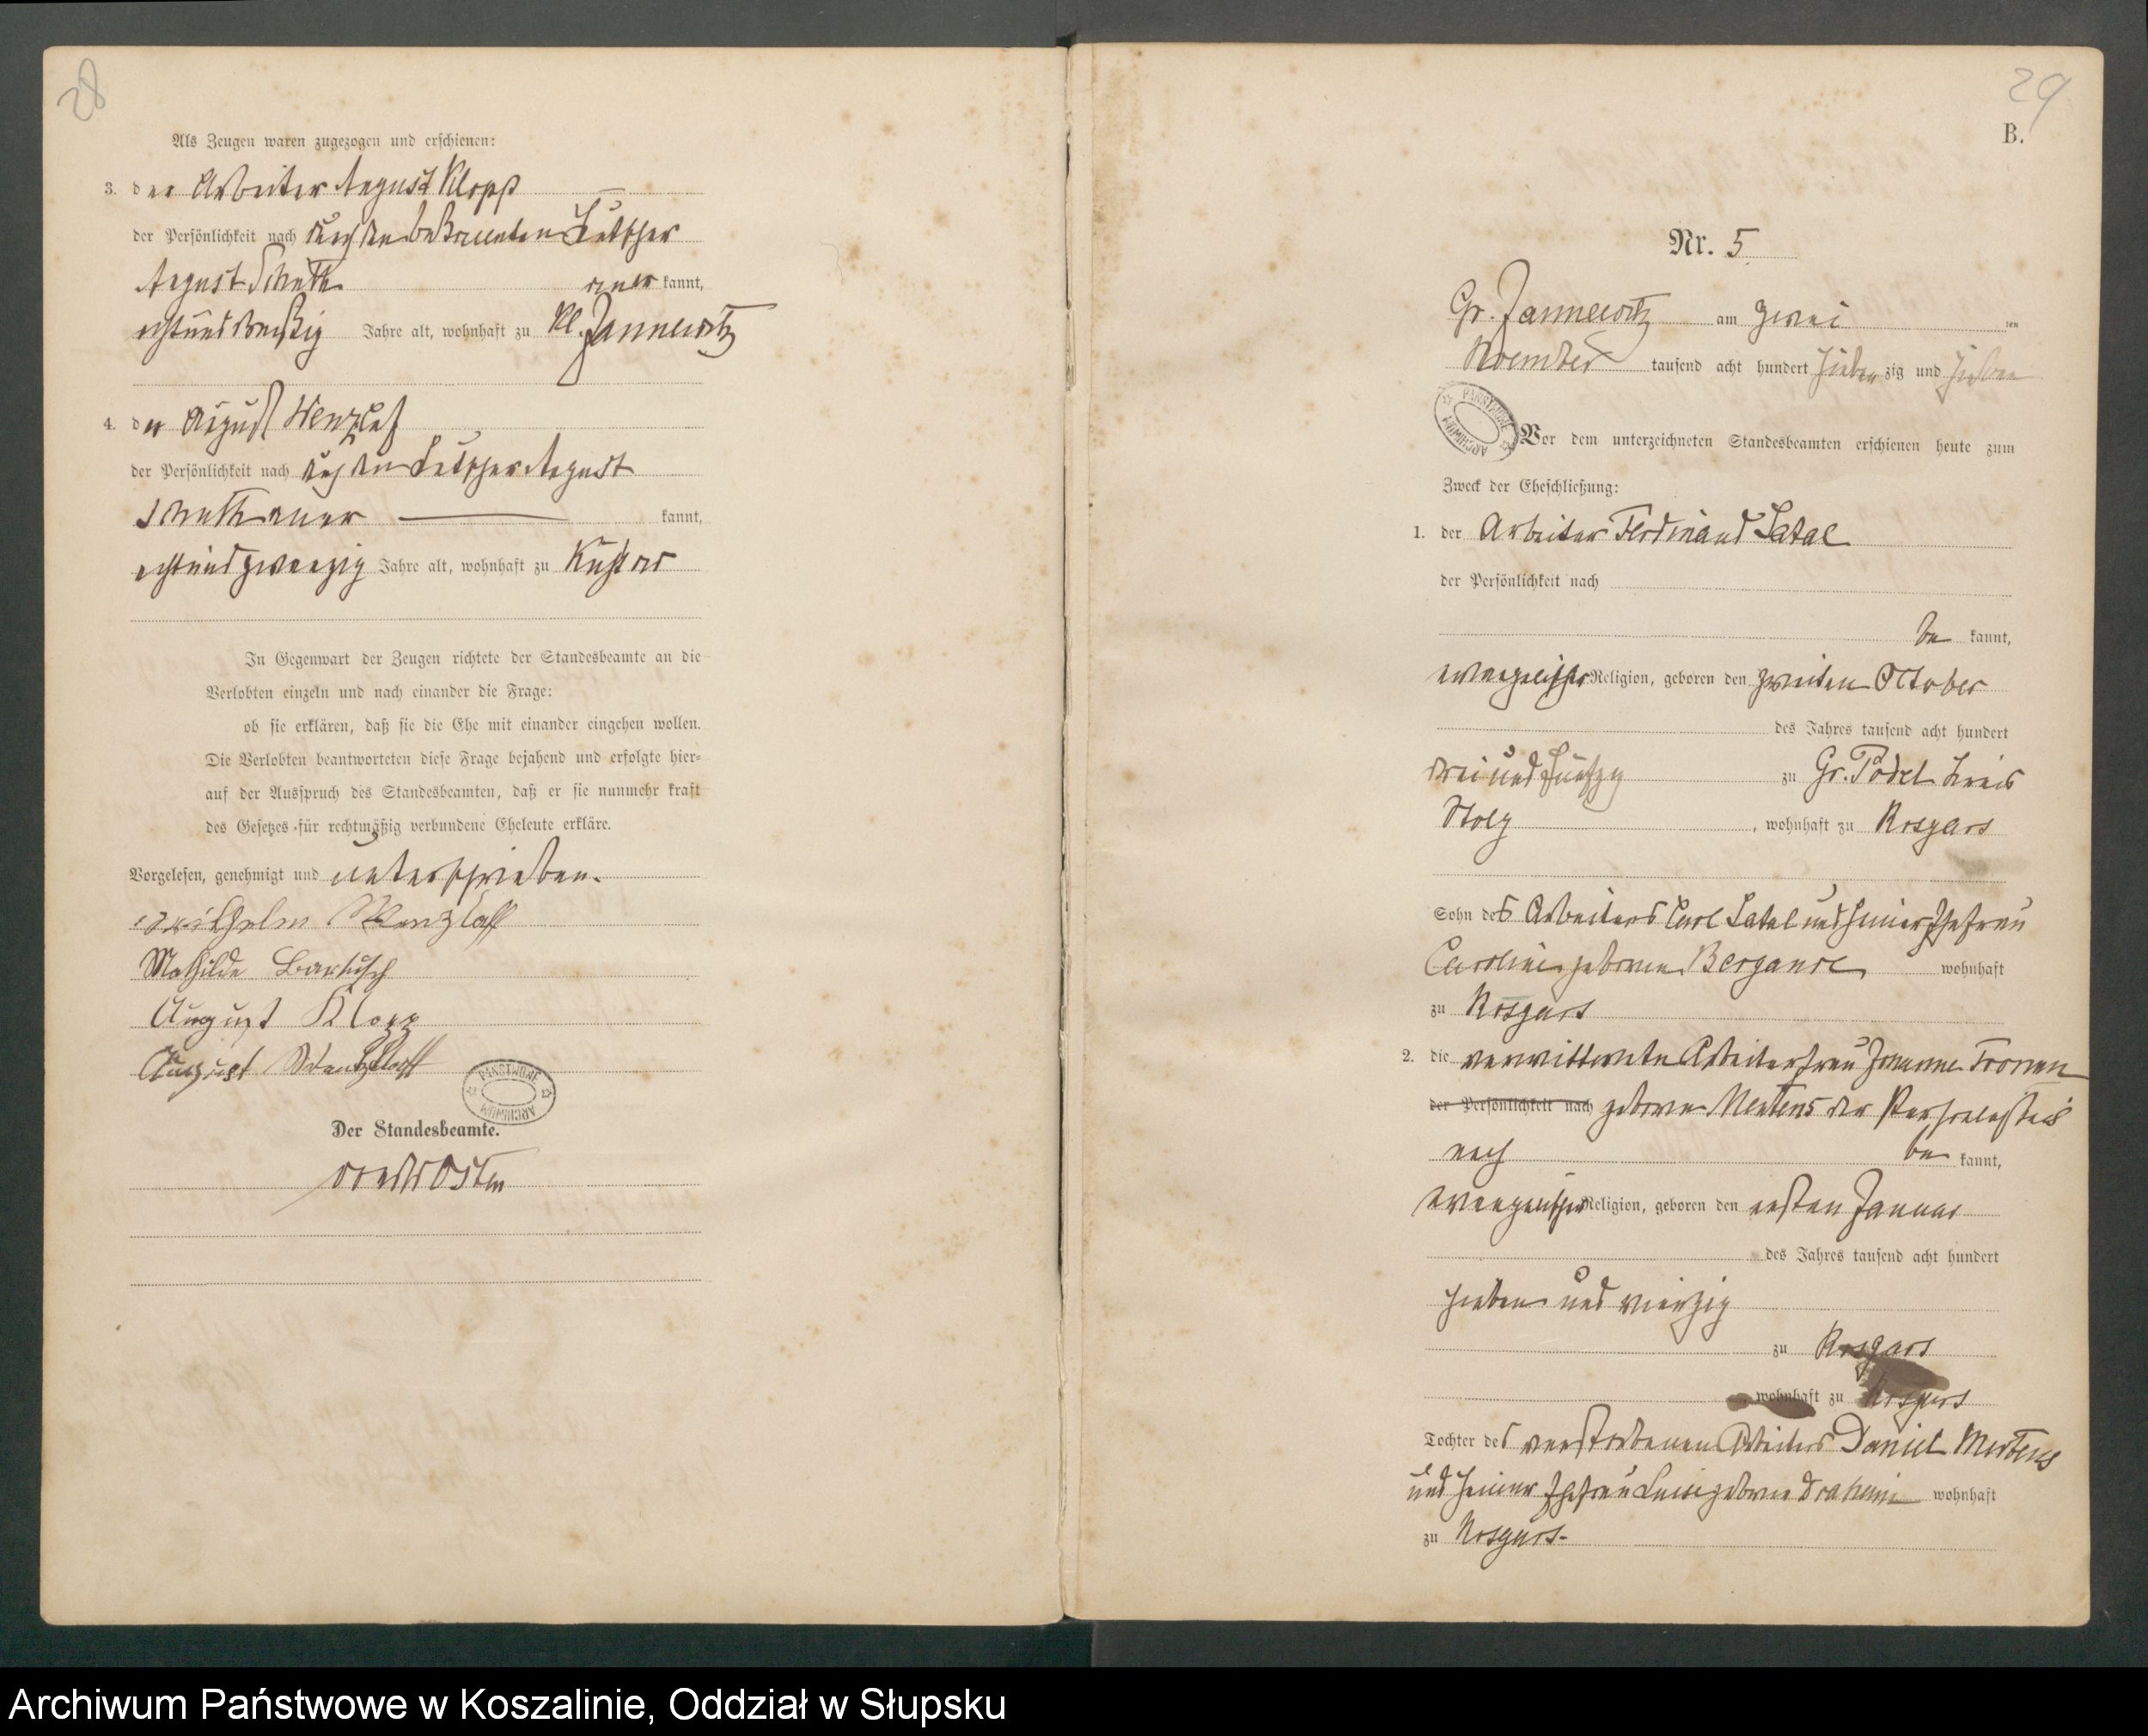 28
Als Zeugen waren zugezogen und erschienen:
3. der Arbeiter August Klopp
der Persönlichkeit nach durch den bekannten
August aner kannt,
achtunddreißig Jahre alt, wohnhaft zu Kl. Jannewitz
4. der August Wenzlaf
der Persönlichkeit nach durch den August
aner kannt,
achtundzwanzig Jahre alt, wohnhaft zu
In Gegenwart der Zeugen richtete der Standesbeamte an die
Verlobten einzeln und nach einander die Frage:
ob sie erklären, daß sie die Ehe mit einander eingehen wollen.
Die Verlobten beantworteten diese Frage bejahend und erfolgte hier-
auf der Ausspruch des Standesbeamten, daß er sie nunmehr kraft
des Gesetzes für rechtmäßig verbundene Eheleute erkläre.
Vorgelesen, genehmigt und unterschrieben.
Wilhelm Wenzlaff
Mathilde Bartusch
August Klopp
August Wentzlaff
ARCHIWUM PAŃSTWOWE
Der Standesbeamte.
von der Osten
29
B.
Nr. 5
Gr. Jannewitz am zwei ten
November tausend acht hundert sieben zig und sieben
ARCHIWUM PAŃSTWOWE
Vor dem unterzeichneten Standesbeamten erschienen heute zum
Zweck der Eheschließung:
1. der Arbeiter Ferdinand Latal
der Persönlichkeit nach
be kannt,
evangelischer Religion, geboren den zweiten October
des Jahres tausend acht hundert
drei und fünfzig zu Gr. Podel Kreis
Stolp, wohnhaft zu Rosgars
Sohn des Arbeiters Carl Latal und seiner Ehefrau
Caroline geborene wohnhaft
zu Rosgars
2. die verwittwete Arbeiterfrau Johanne
der Persönlichkeit nach geborne Mertens der Persönlichkeit
nach be kannt,
evangelischer Religion, geboren den ersten Januar
des Jahres tausend acht hundert
sieben und vierzig
zu Rosgars
wohnhaft zu Rosgars
Tochter des verstorbenen Arbeiters Daniel Mertens
und seiner Ehefrau Luise geborne Draheim wohnhaft
zu Rosgars.
Archiwum Państwowe w Koszalinie, Oddział w Słupsku